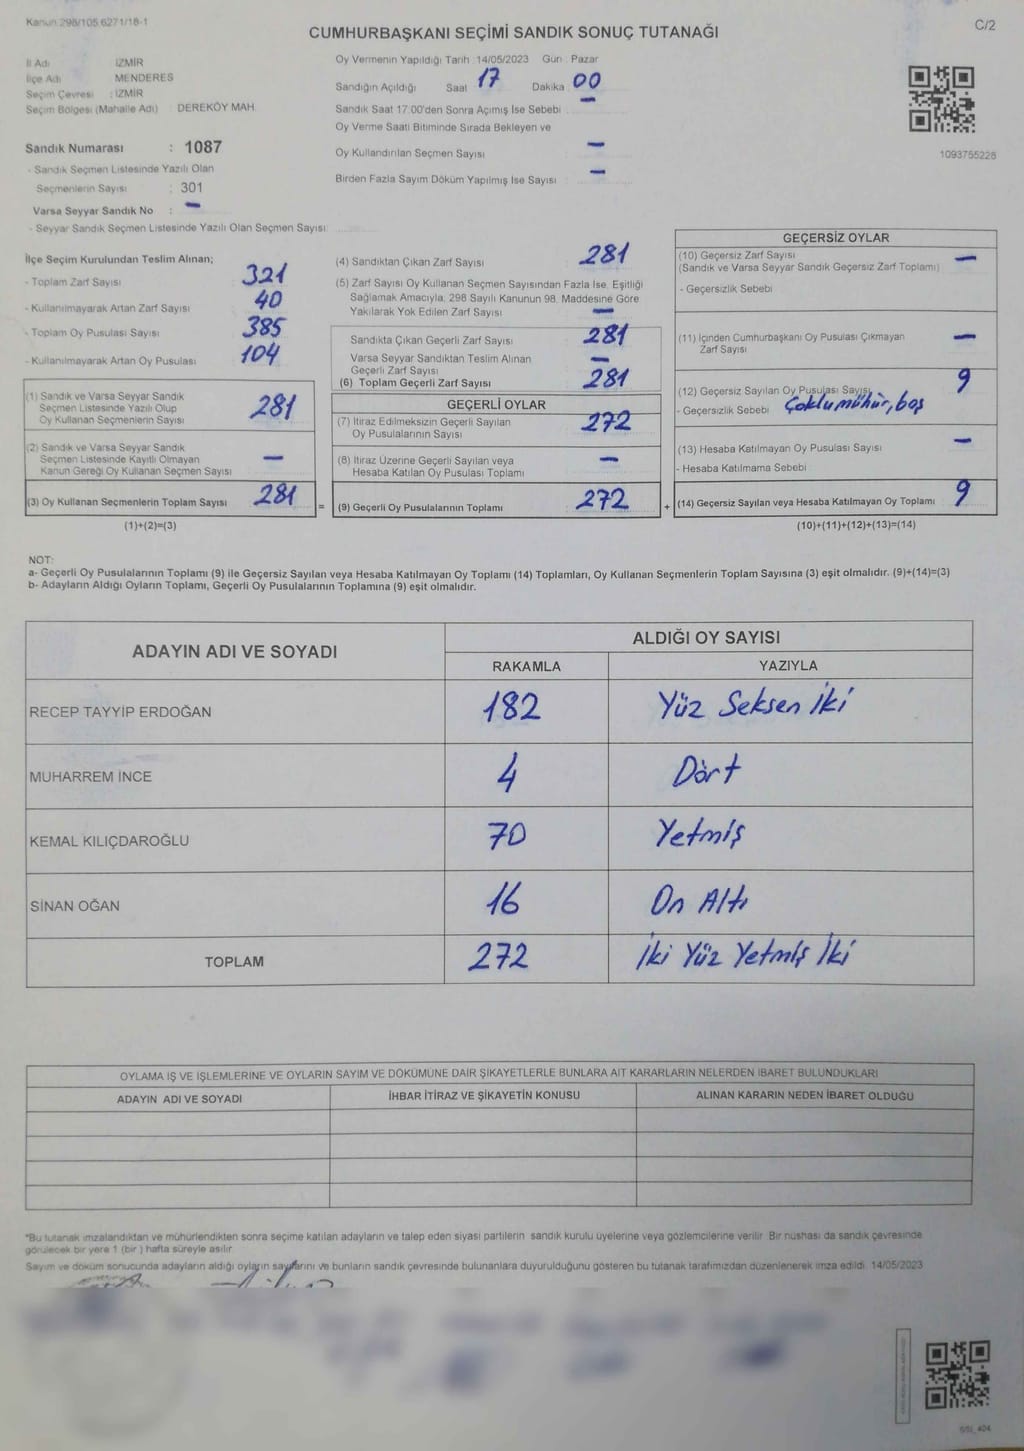 Kanun 298/105 6271/18-1
C/2
CUMHURBAŞKANI SEÇİMİ SANDIK SONUÇ TUTANAĞI
İl Adı İZMİR
İlçe Adı MENDERES
Seçim Çevresi : İZMİR
Seçim Bölgesi (Mahalle Adı) : DEREKÖY MAH.
Sandık Numarası : 1087
- Sandık Seçmen Listesinde Yazılı Olan
Seçmenlerin Sayısı : 301
Varsa Seyyar Sandık No : -
- Seyyar Sandık Seçmen Listesinde Yazılı Olan Seçmen Sayısı
Oy Vermenin Yapıldığı Tarih : 14/05/2023 Gün : Pazar
Sandığın Açıldığı Saat 17 Dakika 00
Sandık Saat 17.00'den Sonra Açımış İse Sebebi -
Oy Verme Saati Bitiminde Sırada Bekleyen ve
Oy Kullandırılan Seçmen Sayısı -
Birden Fazla Sayım Döküm Yapılmış İse Sayısı -
1093755228
İlçe Seçim Kurulundan Teslim Alınan;
- Toplam Zarf Sayısı 321
- Kullanılmayarak Artan Zarf Sayısı 40
- Toplam Oy Pusulası Sayısı 385
- Kullanılmayarak Artan Oy Pusulası 104
(1) Sandık ve Varsa Seyyar Sandık
Seçmen Listesinde Yazılı Olup
Oy Kullanan Seçmenlerin Sayısı 281
(2) Sandık ve Varsa Seyyar Sandık
Seçmen Listesinde Kayıtlı Olmayan
Kanun Gereği Oy Kullanan Seçmen Sayısı -
(3) Oy Kullanan Seçmenlerin Toplam Sayısı 281
(1)+(2)=(3)
=
(4) Sandıktan Çıkan Zarf Sayısı 281
(5) Zarf Sayısı Oy Kullanan Seçmen Sayısından Fazla İse, Eşitliği
Sağlamak Amacıyla, 298 Sayılı Kanunun 98. Maddesine Göre
Yakılarak Yok Edilen Zarf Sayısı -
Sandıkta Çıkan Geçerli Zarf Sayısı 281
Varsa Seyyar Sandıktan Teslim Alınan
Geçerli Zarf Sayısı -
(6) Toplam Geçerli Zarf Sayısı 281
GEÇERLİ OYLAR
(7) İtiraz Edilmeksizin Geçerli Sayılan
Oy Pusulalarının Sayısı 272
(8) İtiraz Üzerine Geçerli Sayılan veya
Hesaba Katılan Oy Pusulası Toplamı -
(9) Geçerli Oy Pusulalarının Toplamı 272
+
GEÇERSİZ OYLAR
(10) Geçersiz Zarf Sayısı
(Sandık ve Varsa Seyyar Sandık Geçersiz Zarf Toplamı) -
- Geçersizlik Sebebi
(11) İçinden Cumhurbaşkanı Oy Pusulası Çıkmayan
Zarf Sayısı -
(12) Geçersiz Sayılan Oy Pusulası Sayısı 9
- Geçersizlik Sebebi Çoklu mühür, boş
(13) Hesaba Katılmayan Oy Pusulası Sayısı -
- Hesaba Katılmama Sebebi
(14) Geçersiz Sayılan veya Hesaba Katılmayan Oy Toplamı 9
(10)+(11)+(12)+(13)=(14)
NOT:
a- Geçerli Oy Pusulalarının Toplamı (9) ile Geçersiz Sayılan veya Hesaba Katılmayan Oy Toplamı (14) Toplamları, Oy Kullanan Seçmenlerin Toplam Sayısına (3) eşit olmalıdır. (9)+(14)=(3)
b- Adayların Aldığı Oyların Toplamı, Geçerli Oy Pusulalarının Toplamına (9) eşit olmalıdır.
ADAYIN ADI VE SOYADI
ALDIĞI OY SAYISI
RAKAMLA YAZIYLA
RECEP TAYYİP ERDOĞAN 182 Yüz Seksen İki
MUHARREM İNCE 4 Dört
KEMAL KILIÇDAROĞLU 70 Yetmiş
SİNAN OĞAN 16 On Altı
TOPLAM 272 İki Yüz Yetmiş İki
OYLAMA İŞ VE İŞLEMLERİNE VE OYLARIN SAYIM VE DÖKÜMÜNE DAİR ŞİKAYETLERLE BUNLARA AİT KARARLARIN NELERDEN İBARET BULUNDUKLARI
ADAYIN ADI VE SOYADI İHBAR İTİRAZ VE ŞİKAYETİN KONUSU ALINAN KARARIN NEDEN İBARET OLDUĞU
*Bu tutanak imzalandıktan ve mühürlendikten sonra seçime katılan adayların ve talep eden siyasi partilerin sandık kurulu üyelerine veya gözlemcilerine verilir. Bir nüshası da sandık çevresinde
görülecek bir yere 1 (bir ) hafta süreyle asılır.
Sayım ve döküm sonucunda adayların aldığı oyların sayılarını ve bunların sandık çevresinde bulunanlara duyurulduğunu gösteren bu tutanak tarafımızdan düzenlenerek imza edildi. 14/05/2023